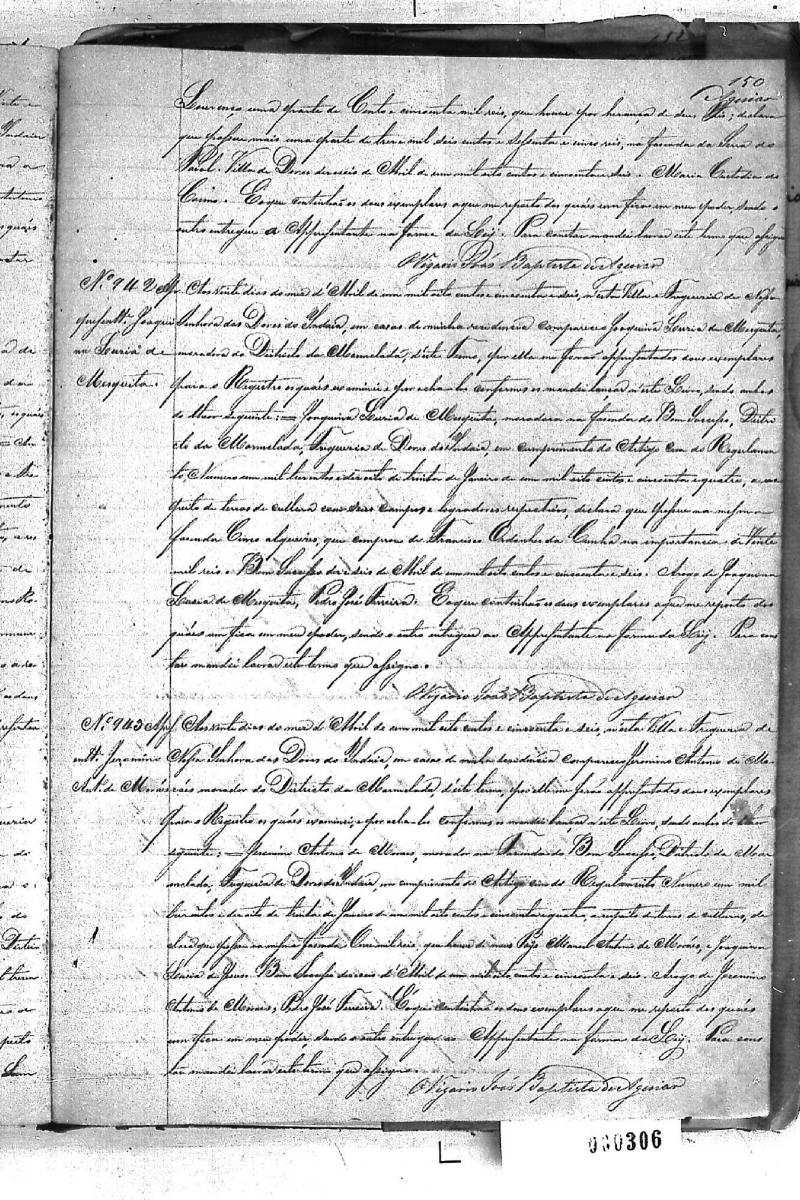 150
Aguiar
Lourenço uma parte de Cento e cincoenta mil reis, que houve por herança de seus Pais; declara
que possue mais uma parte de trese mil seis centos e sessenta e cinco reis, na fasenda da Serra do
Villa de Dores deseseis de Abril de um mil oito centos e cincoenta e seis. Maria Custodia de
E o que continhão os dous exemplares a que me reporto dos quáes um fica em meu poder, sendo o
outro entregue a Appresentante na forma da Lei. Para constar mandei lavrar este termo que assigno
O Vigario Joáo Baptista de Aguiar
N.º 942 Ap Aos vinte dias do mes d'Abril de um mil oito centos e cincoenta e seis, n'esta Villa e Fregueria de Nossa
present.e Joaqui Senhora das Dores do Indaiá, em casas de minha residencia compareceo Joaquina Luzia de Mesquita,
na Luzia de moradora do Districto da Marmelada, d'este Termo, por ella me forão appresentados dous exemplares
Mesquita. para o Registro os quáes examinei e por acha-los conformes os mandei lançar n'este Livro, sendo ambos
do theor seguinte: = Joaquina Luzia de Mesquita, moradora na fasenda do Bom Sucesso, Distri
cto da Marmelada, Fregueria de Dores do Indaiá, em cumprimento do Artigo cem do Regulamen
to Numero um mil tresentos e desoito de trinta de Janeiro de um mil oito centos e cincoenta e quatro, a res
peito de terras de cultura com seus campos e logradores respectivos, declara que possue na mesma
fasenda Cinco alqueires, que comprou de Francisco Ordonhes da Cunha na importancia de Vinte
mil reis. Bom Sucesso deseseis de Abril de um mil oito centos e cincoenta e seis. Arogo de Joaquina
Luzia de Mesquita, Pedro José Ferreira. E o que continhão os dous exemplares a que me reporto dos
quáes um fica em meu poder, sendo o outro entregue ao Appresentante na forma da Lei. Para cons
tar mandei lavrar este termo que assigno.
O Vigario Joáo Baptista de Aguiar
N.º 943 Apres Aos vinte dias do mes d'Abril de um mil oito centos e cincoenta e seis, nesta Villa e Fregueria de
ent.e Jeronimo Nossa Senhora das Dores do Indaiá, em casas de minha residencia compareceo Jeronimo Antonio de Mo
Ant.o de Moráes ráes morador do Districto da Marmelada, d'este termo, por elle me forão appresentados dous exemplares
para o Registro os quáes examinei, e por acha-los conformes os mandei lançar n'este Livro, sendo ambos do theor
seguinte: = Jeronimo Antonio de Moraes, morador na Fasenda do Bom Sucesso, Districto da Mar
melada, Fregueria de Dores do Indaiá, em cumprimento do Artigo cem do Regulamento Numero um mil
tresentos e desoito de trinta de Janeiro de um mil oito centos e cincoenta e quatro, a respeito de terras de culturas, de
clara que possue na mesma fasenda Onse mil reis, que houve de meus Pays Manoel Antonio de Moráes, e Joaquina
Luzia de Jesus. Bom Sucesso deseseis d'Abril de um mil oito centos e cincoenta e seis. Arogo de Jeronimo
Antonio de Moraes, Pedro José Ferreira. E o que continhão os dous exemplares a que me reporto dos quáes
um fica em meu poder, sendo o outro entregue ao Appresentante na forma da Lei. Para cons
tar mandei lavrar este termo que assigno.
O Vigario Joáo Baptista de Aguiar
000306